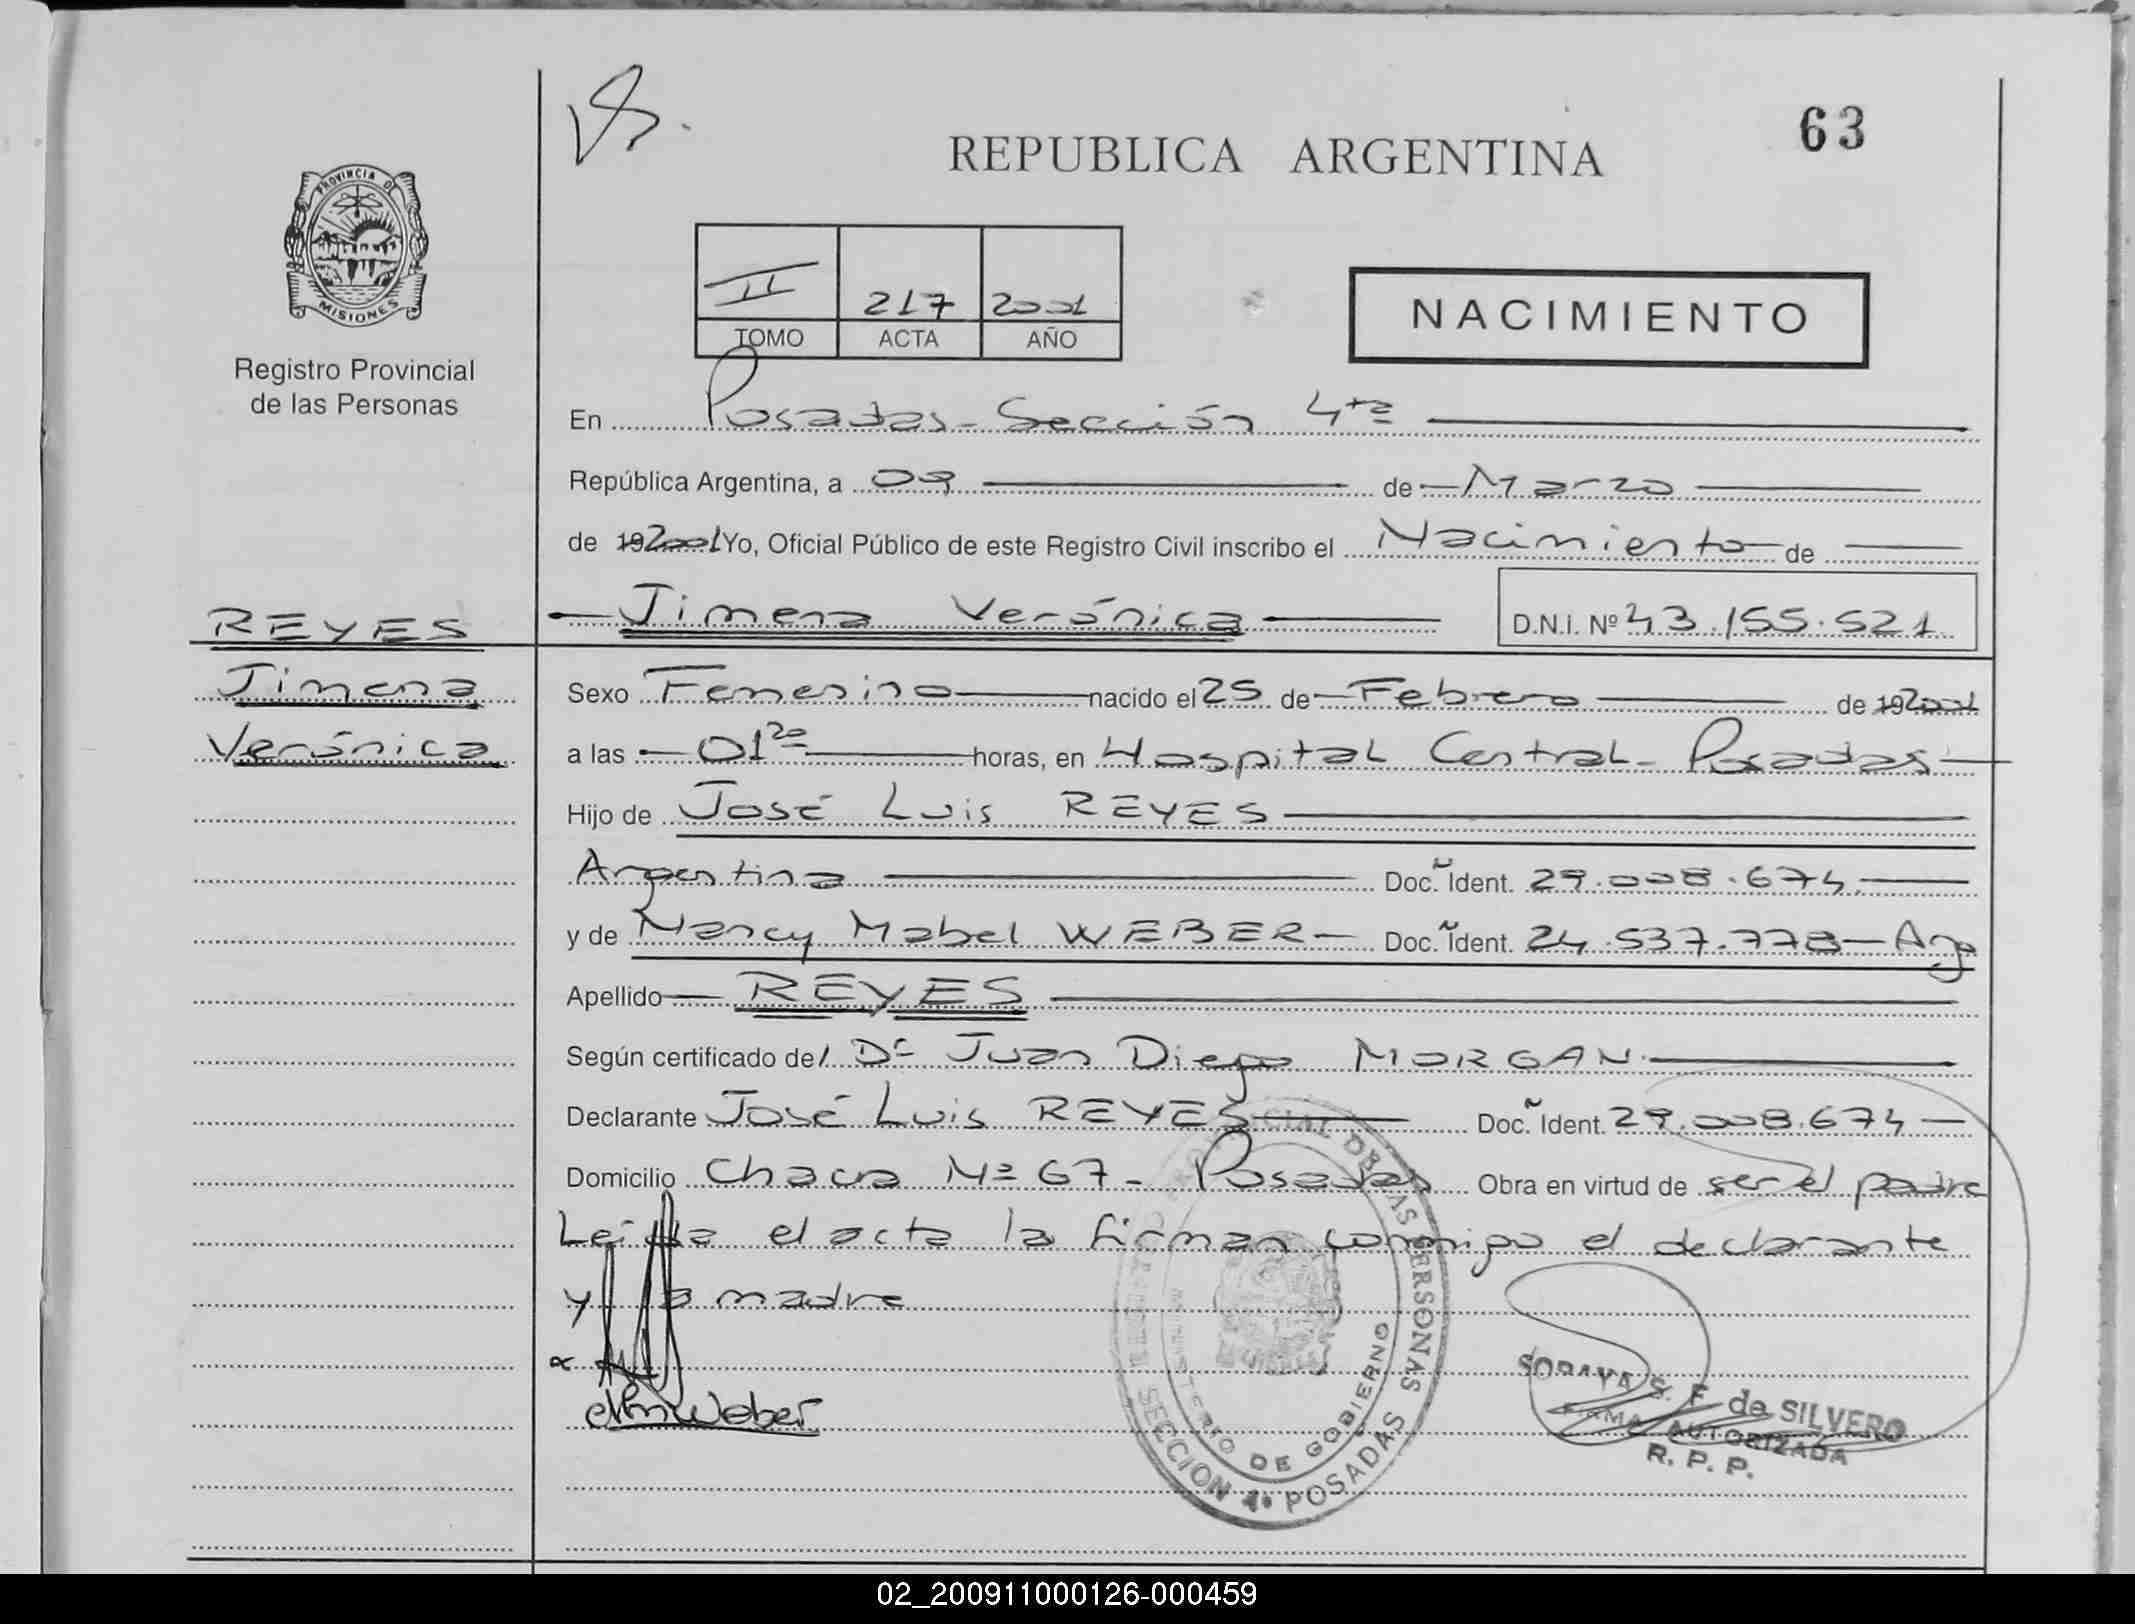 63
REPUBLICA ARGENTINA
PROVINCIA DE
MISIONES
Registro Provincial
de las Personas
II 217 2001
TOMO ACTA AÑO
NACIMIENTO
En Posadas - Sección 4ta
República Argentina, a 09 de Marzo
de 192001 Yo, Oficial Público de este Registro Civil inscribo el Nacimiento de
Jimena Verónica D.N.I. Nº 43.155.521
REYES
Jimena
Verónica
Sexo Femenino nacido el 25 de Febrero de 192001
a las 01 20 horas, en Hospital Central - Posadas
Hijo de José Luis REYES
Argentina Doc. Ident. 29.008.674
y de Nancy Mabel WEBER Doc. Ident. 24.537.778 - Arg
Apellido REYES
Según certificado del Dr Juan Diego MORGAN
Declarante José Luis REYES Doc. Ident. 29.008.674
Domicilio Chacra Nº 67 - Posadas Obra en virtud de ser el padre
Leída el acta la firman conmigo el declarante
y la madre
Weber
PERSONAS
MINISTERIO DE GOBIERNO
SECCION 4ª POSADAS
SORAYA S. F. de SILVERO
FIRMA AUTORIZADA
R. P. P.
02_200911000126-000459